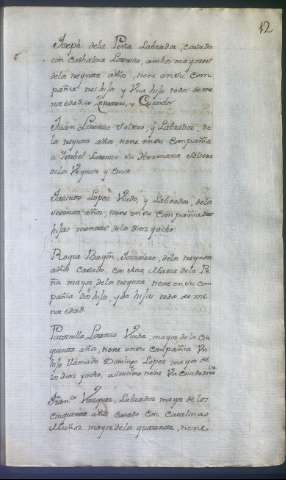 42
Joseph de la Peña Labrador, casado
con Cathalina Lorenzo, ambos mayores
de los treynta años, tiene en su Com
pañia un hijo y Una hija todo de me
nor edad
Juan Lorenzo Soltero, y Labrador, de
los treynta años tiene en su Compañia
a Ysabel Lorenzo su Hermana Soltera
de la
Jazinto Lopez Viudo, y Labrador, de los
años, tiene en su Compañia dos
hijas menores de los diez y ocho
Roque Jornalero, de los treynta
años Casado, con Ana Maria de la Pe
ña mayor de los treynta, tiene en su Com
pañia Un hijo, y dos hijas todos de me
nor edad
Petronila Lorenzo Viuda, mayor de los Cin
quenta años, tiene en su Compañia Un
hijo llamado Domingo Lopez mayor de
los diez y ocho, asimismo tiene Un
Franco Vazquez, Labrador mayor de los
Cinquenta años casado Con Catalina
Muñoz mayor de los quarenta, tiene